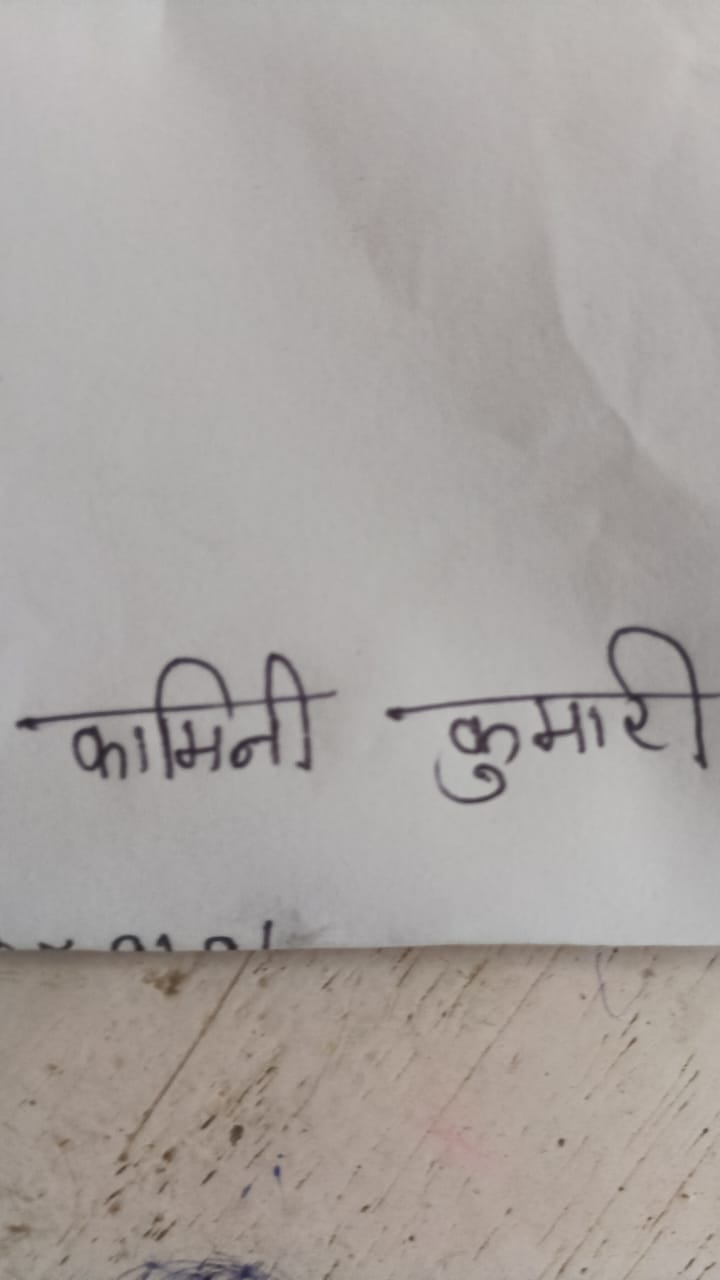 कामिनी कुमारी